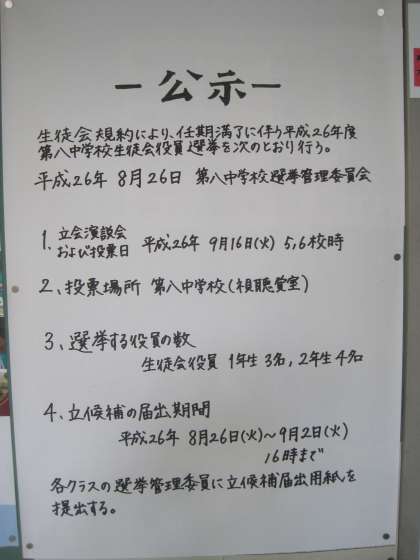 －公示－
生徒会規約により、任期満了に伴う平成26年度
第八中学校生徒会役員選挙を次のとおり行う。
平成26年 8月26日 第八中学校選挙管理委員会
1. 立会演説会
および投票日 平成26年 9月16日(火) 5,6校時
2、投票場所 第八中学校(視聴覚室)
3、選挙する役員の数
生徒会役員 1年生3名,2年生4名
4、立候補の届出期間
平成26年 8月26日(火)～9月2日(火)
16時まで
各クラスの選挙管理委員に立候補届出用紙を
提出する。